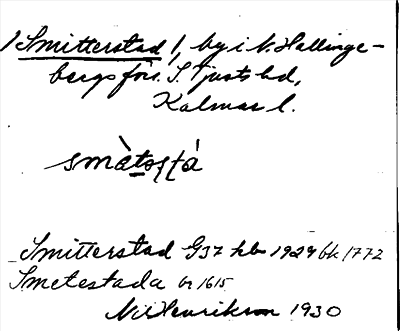 /Smitterstad/, by i N. Hallinge-
bergs förs. S. Tjusts hd,
Kalmar l.
smàtestá
Smitterstad G37 hbr 1929 bk 1772
Smetestada br 1615
Nils Henrikson 1930